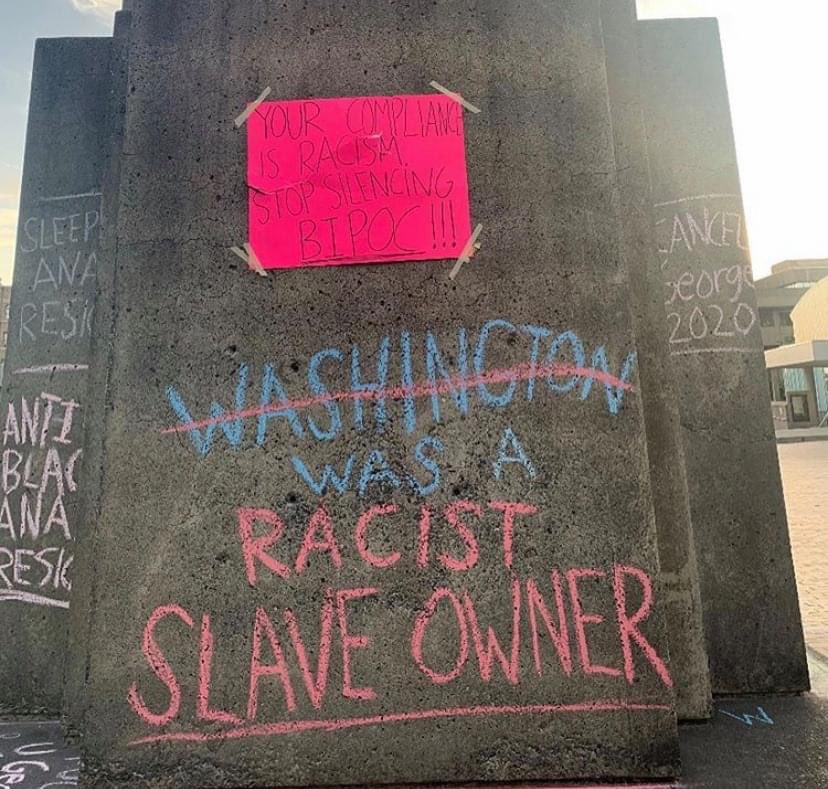 YOUR COMPLIANCE
IS RACISM.
STOP SILENCING
BIPOC!!!
SLEEP
ANA
RESI
ANTI
BLAC
ANA
RESIG
CANCEL
George
2020
WASHINGTON
WAS A
RACIST
SLAVE OWNER
W